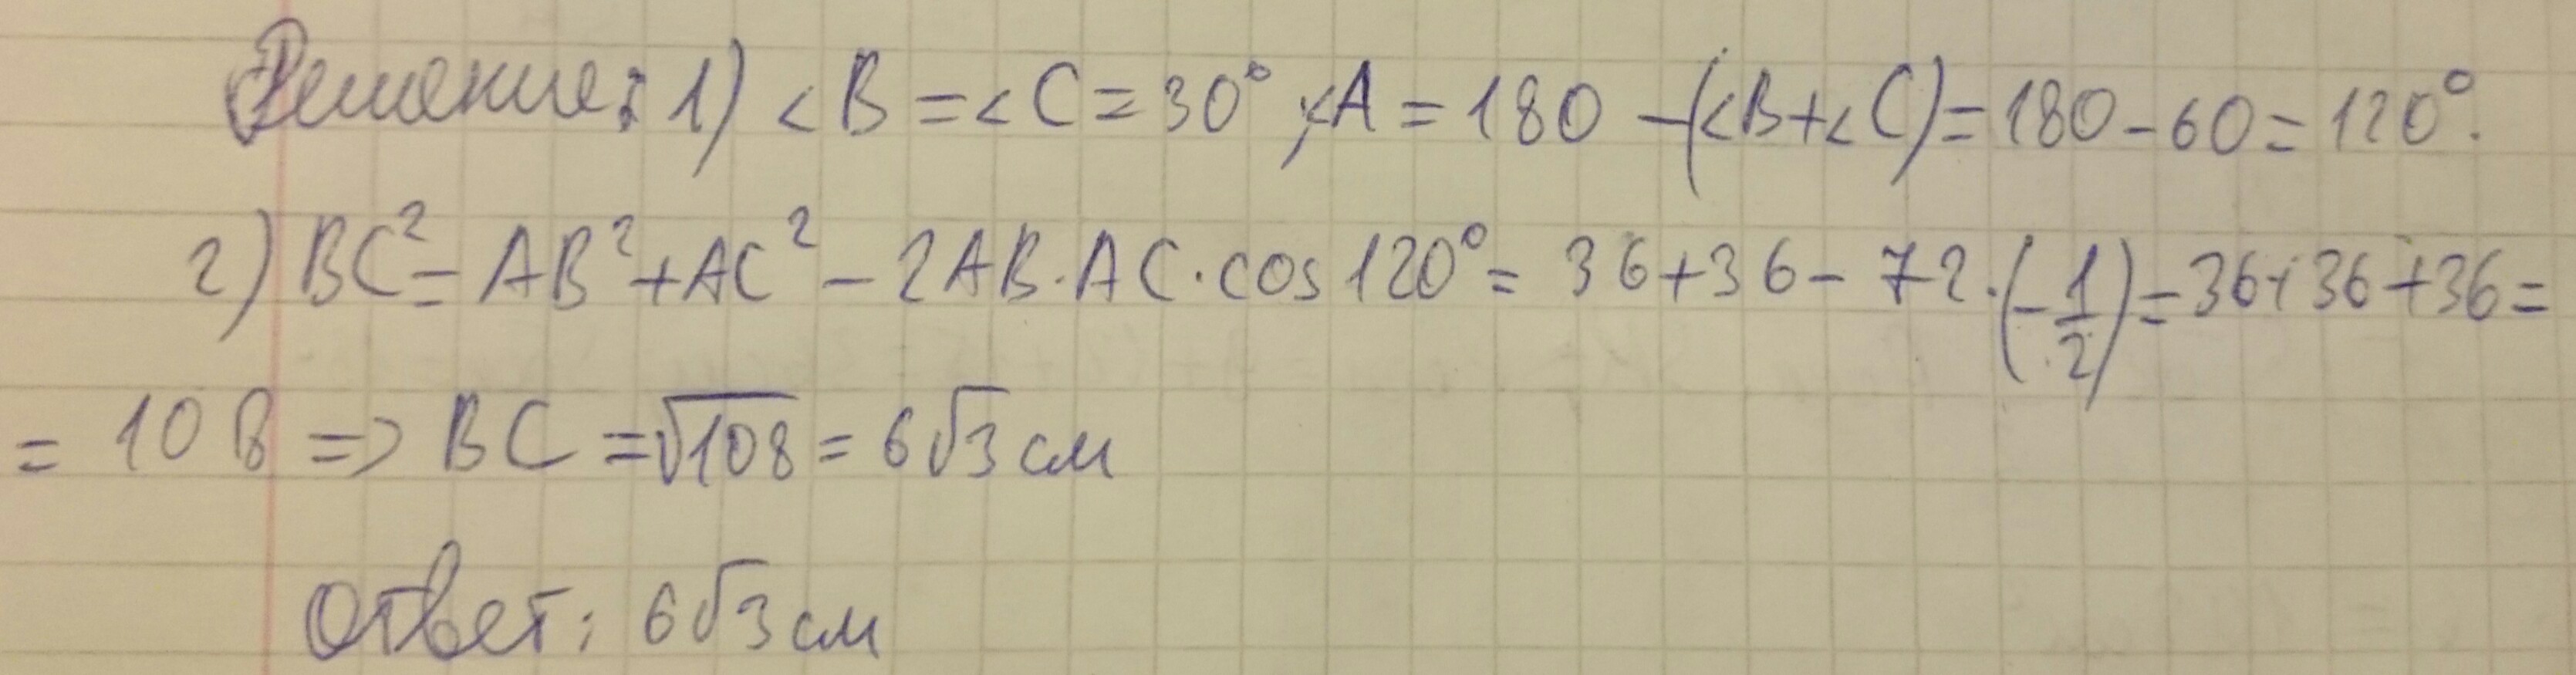 Решение: 1) <B = <C = 30°, <A = 180 - (<B + <C) = 180 - 60 = 120°.
2) BC² = AB² + AC² - 2AB · AC · cos 120° = 36 + 36 - 72 · (-1/2) = 36 + 36 + 36 =
= 108 => BC = √108 = 6√3 см
Ответ: 6√3 см